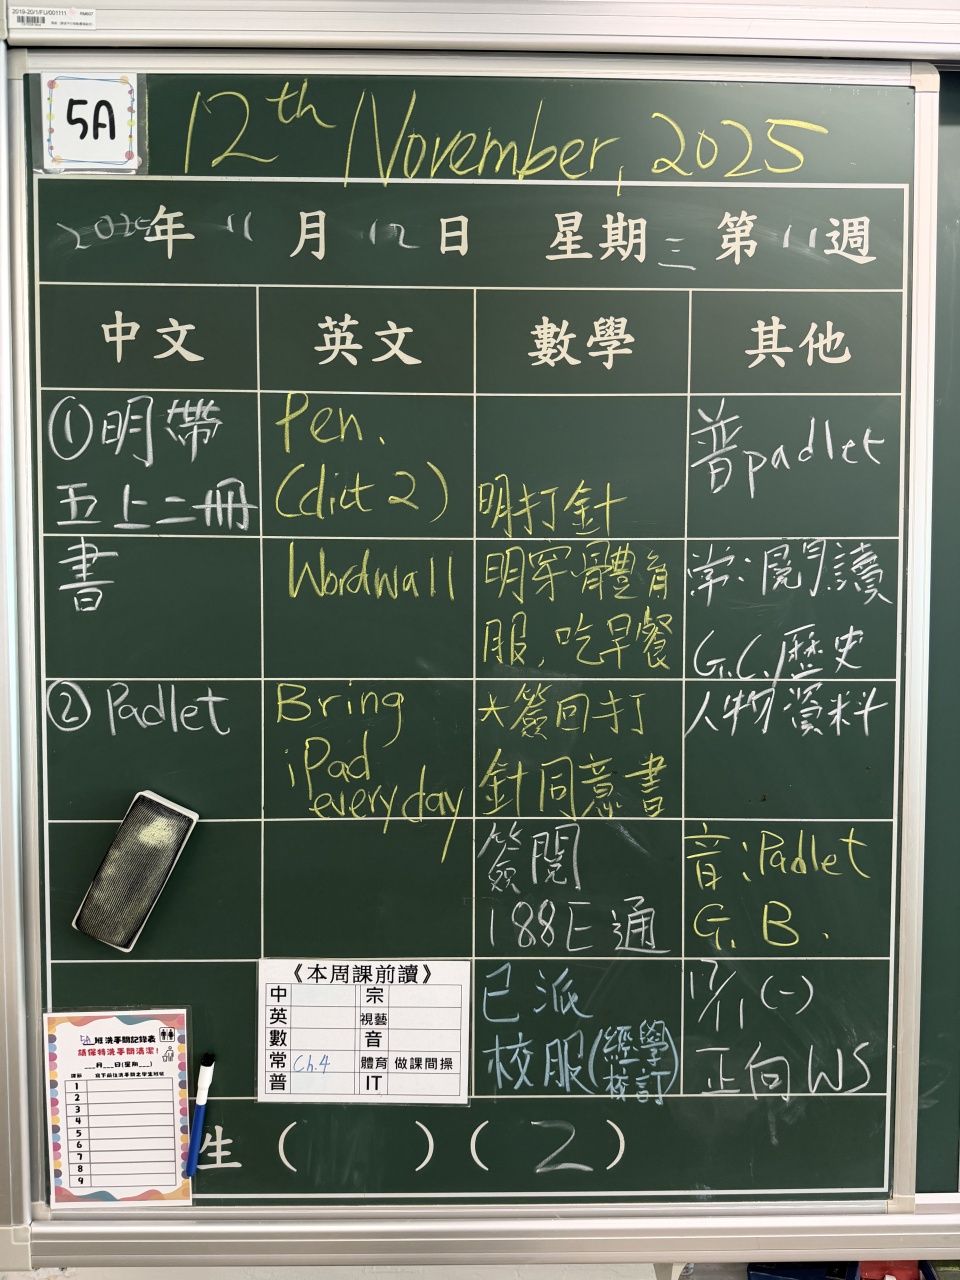 2019-20/1/FU/001111
5A
12th November, 2025
2025年 11月 12日 星期三 第11週
中文 英文 數學 其他
①明帶
五上二冊
書
② Padlet
Pen.
(dict 2)
Wordwall
Bring
iPad
everyday
明打針
明穿體育
服,吃早餐
*簽回打
針同意書
簽閱
188E通
已派
校服(經學校訂)
普padlet
常:閱讀
G.C.歷史
人物資料
音:Padlet
G. B.
17/11(一)
正向WS
《本周課前讀》
中 宗
英 視藝
數 音
常 Ch.4 體育 做課間操
普 IT
5A班洗手間記錄表
請保持洗手間清潔!
___月___日(星期___)
1
2
3
4
5
6
7
8
9
生 ( ) ( 2 )